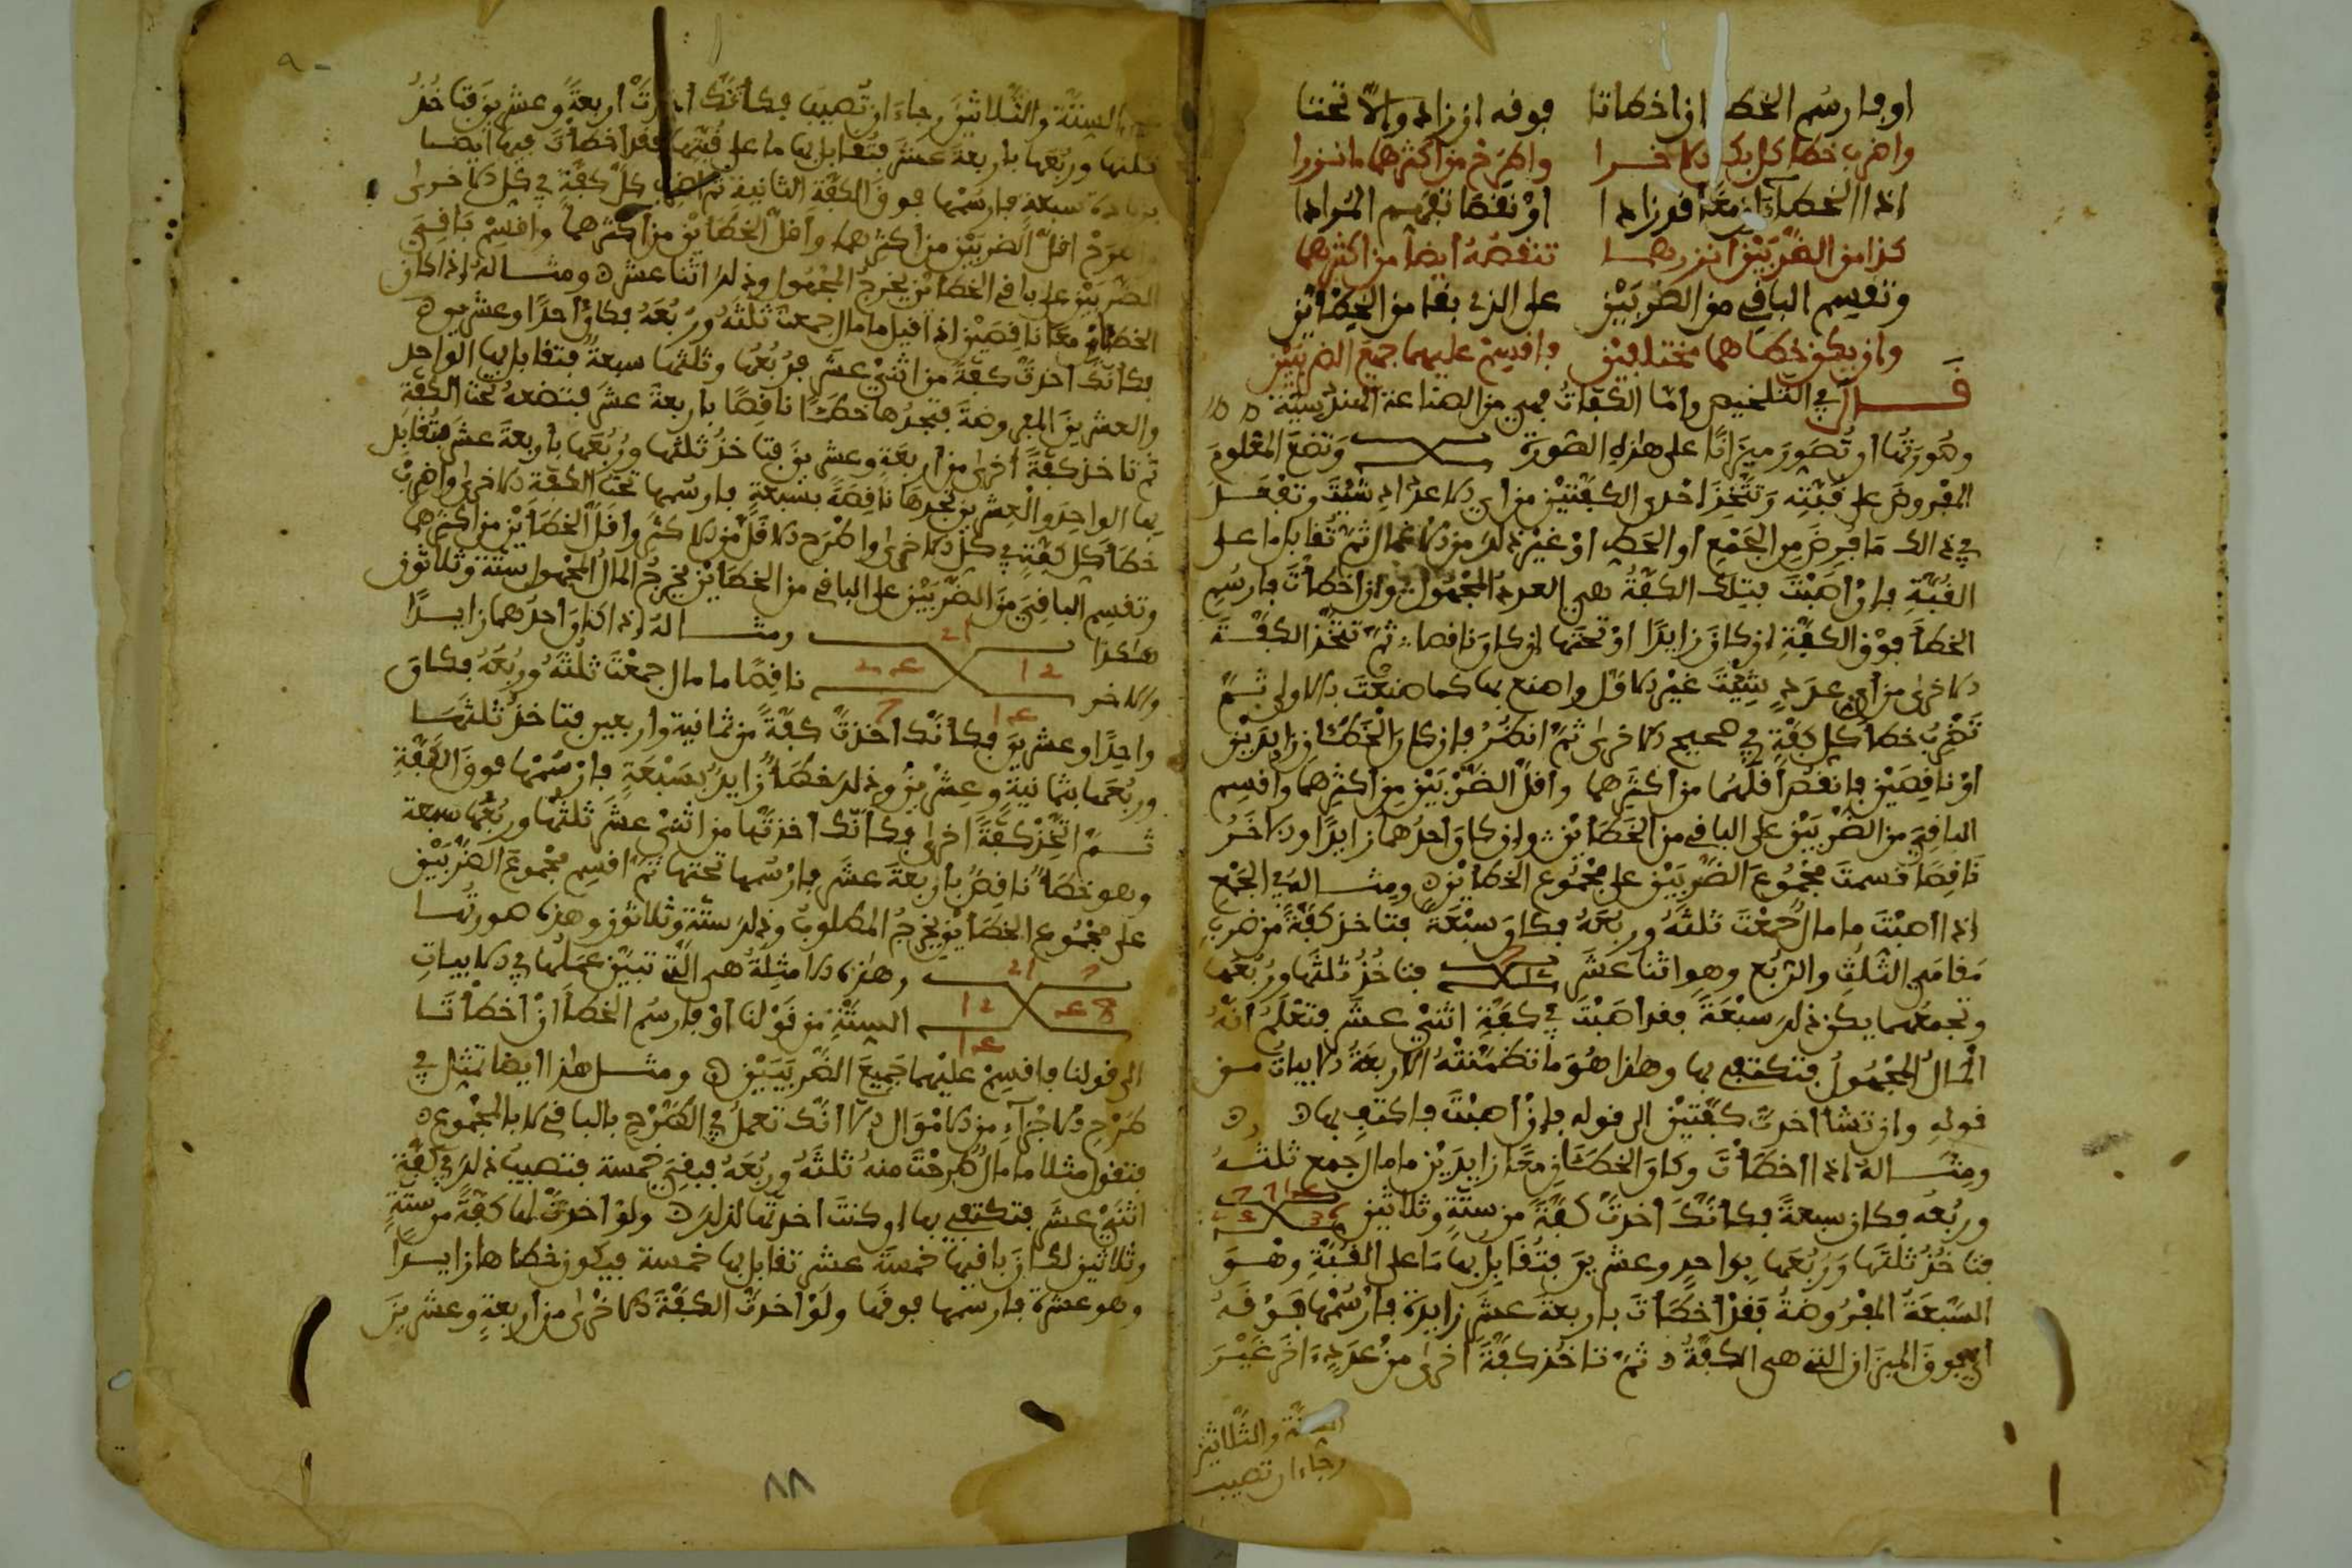 او فارسم الخطا ان اخطاتا فوفه ان زاد والا تحتا
واضرب خطا كل بكل الاخرا واطرح من اكثرهما ما نزرا
اذا الخطآن معا قد زادا او نقصا نفهم المرادا
كذا من الضربين انزرهما تنقصه ايضا من اكثرهما
وتقسم الباقي من الضربين على الذي بقا من الخطاين
وان يكن خطاهما مختلفين فاقسم عليهما جميع الضربين
قال في التلخيص واما الكفات فهي من الصناعة الهندسية
وصورتها ان تصور ميزانا على هذه الصورة وتضع المعلوم
المفروض على قبته وتتخذ احدى الكفتين من اي الاعداد شئت وتفعل
في ذالك ما فرض من الجمع او الحط او غير ذلك من الاعمال ثم تقابل ما على
القبة فان اصبت فتلك الكفة هي العدد المجهول وان اخطات فارسم
الخطا فوق الكفة ان كان زايدا او تحتها ان كان ناقصا ثم تتخذ الكفة
الاخرى من اي عدد شئت غير الاول واصنع بها كما صنعت بالاولى ثم
تضرب خطا كل كفة في صحيح الاخرى ثم انظر فان كان الخطان زايدين
او ناقصين فانقص اقلهما من اكثرهما واقل الضربين من اكثرهما واقسم
الباقي من الضربين على الباقي من الخطاين وان كان احدهما زايدا والاخر
ناقصا قسمت مجموع الضربين على مجموع الخطاين ومثاله في الجمع
اذا اصبت ما مال جمعت ثلثه وربعه فكان سبعة فتاخذ كفة من ضرب
مقامي الثلث والربع وهو اثنا عشر 7 12 فتاخذ ثلثها وربعها
وتجمعهما يكن ذلك سبعة فقد اصبت في كفة اثني عشر فتعلم انه
المال المجهول فتكتفي بها وهذا هو ما تضمنته الاربعة الابيات من
قوله وان تشا اخذت كفتين الى قوله فان اصبت فاكتف بها
ومثاله اذا اخطات وكان الخطان معا زايدين ما مال جمع ثلثه
وربعه فكان سبعة فكانك اخذت كفة من ستة وثلاثين
فتاخذ ثلثها وربعها بواحد وعشرين فتقابل بها ما على القبة وهو
السبعة المفروضة فقد اخطات باربعة عشر زايدة فارسمها فوقه
اي فوق الميزان التي هي الكفة ثم تاخذ كفة اخرى من عدد اخر غير
الستة والثلاثين
رجاء ان تصيب
الستة والثلاثين رجاء ان تصيب فكانك اخذت اربعة وعشرين فتاخذ
ثلثها وربعها باربعة عشر فتقابل بها ما على قبتها فقد اخطات فيها ايضا
بزيادة سبعة فارسمها فوق الكفة الثانية ثم اضرب كل كفة في كل الاخرى
واطرح اقل الضربين من اكثرهما واقل الخطاين من اكثرهما واقسم باقي
الضربين على باقي الخطاين يخرج المجهول وذلك اثنا عشر ومثاله اذا كان
الخطان معا ناقصين اذا قيل ما مال جمعت ثلثه وربعه فكان احدا وعشرين
فكانك اخذت كفة من اثني عشر فربعها وثلثها سبعة فتقابل بها الواحد
والعشرين المفروضة فتجدها خطا ناقصا باربعة عشر فتضعه تحت الكفة
ثم تاخذ كفة اخرى من اربعة وعشرين فتاخذ ثلثها وربعها باربعة عشر فتقابل
بها الواحد والعشرين تجدها ناقصة بسبعة فارسمها تحت الكفة الاخرى واضرب
خطا كل كفة في كل الاخرى واطرح الاقل من الاكثر واقل الخطاين من اكثرهما
وتقسم الباقي من الضربين على الباقي من الخطاين يخرج المال المجهول ستة وثلاثون
هكذا 21 12 24 14 7 ومثاله اذا كان احدهما زايدا
والاخر ناقصا ما مال جمعت ثلثه وربعه فكان
واحدا وعشرين فكانك اخذت كفة من ثمانية واربعين فتاخذ ثلثها
وربعها بثمانية وعشرين وذلك خطا زايد بسبعة فارسمها فوق الكفة
ثم اتخذ كفة اخرى فكانك اخذتها من اثني عشر ثلثها وربعها سبعة
وهو خطا ناقص باربعة عشر فارسمها تحتها ثم اقسم مجموع الضربين
على مجموع الخطاين يخرج المطلوب وذلك ستة وثلاثون وهذه صورتها
7 21 48 12 14 وهذه الامثلة هي التي تبين عملها في الابيات
الستة من قولنا او فارسم الخطا ان اخطاتا
الى قولنا فاقسم عليهما جميع الضربين ومثل هذا ايضا تمثل في
طرح الاجزاء من الاموال الا انك تعمل في الطرح بالباقي لا بالمجموع
فتقول مثلا ما مال طرحت منه ثلثه وربعه فبقي خمسة فتصيب ذلك في كفة
اثني عشر فتكتفي بها ان كنت اخذتها لذلك ولو اخذت لها كفة من ستة
وثلاثين لكان باقيها خمسة عشر تقابل بها خمسة فيكون خطاها زايدا
وهو عشرة فارسمها فوقها ولو اخذت الكفة الاخرى من اربعة وعشرين
٨٨